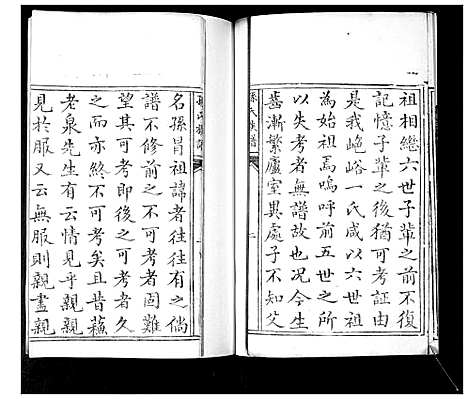 祖相繼六世子輩之前不復
記憶子輩之後猶可考証由
是我峪一氏咸以六世祖
為始祖焉嗚呼前五世之所
以失考者無譜故也況今生
齒漸繁廬室異處子不知父
孫氏族譜
名孫冒祖諱者往往有之倘
譜不修前之可考者固難
望其可考即後之可考者久
之而亦終不可考矣且昔蘇
老泉先生有云情見乎親親
見於服又云無服則親盡親